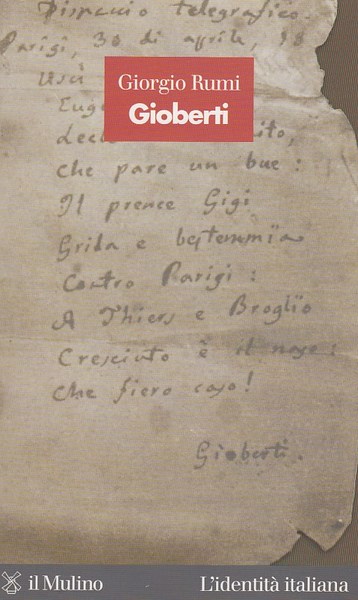 Dispaccio telegrafico.
Parigi, 30 di aprile, 18
Uscì
Giorgio Rumi
Gioberti
che pare un bue:
Il prence Gigi
Grida e bestemmia
Contro Parigi:
A Thiers e Broglio
Cresciuto è il naso:
Che fiero caso!
Gioberti.
il Mulino
L'identità italiana